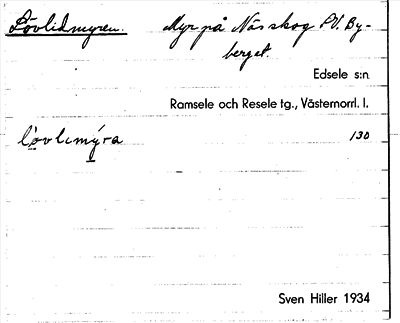 Lövlidmyren. Myr på Nässkog PV. By-
berget.
Edsele s:n
Ramsele och Resele tg., Västernorrl. l.
lövlimýra 130
Sven Hiller 1934